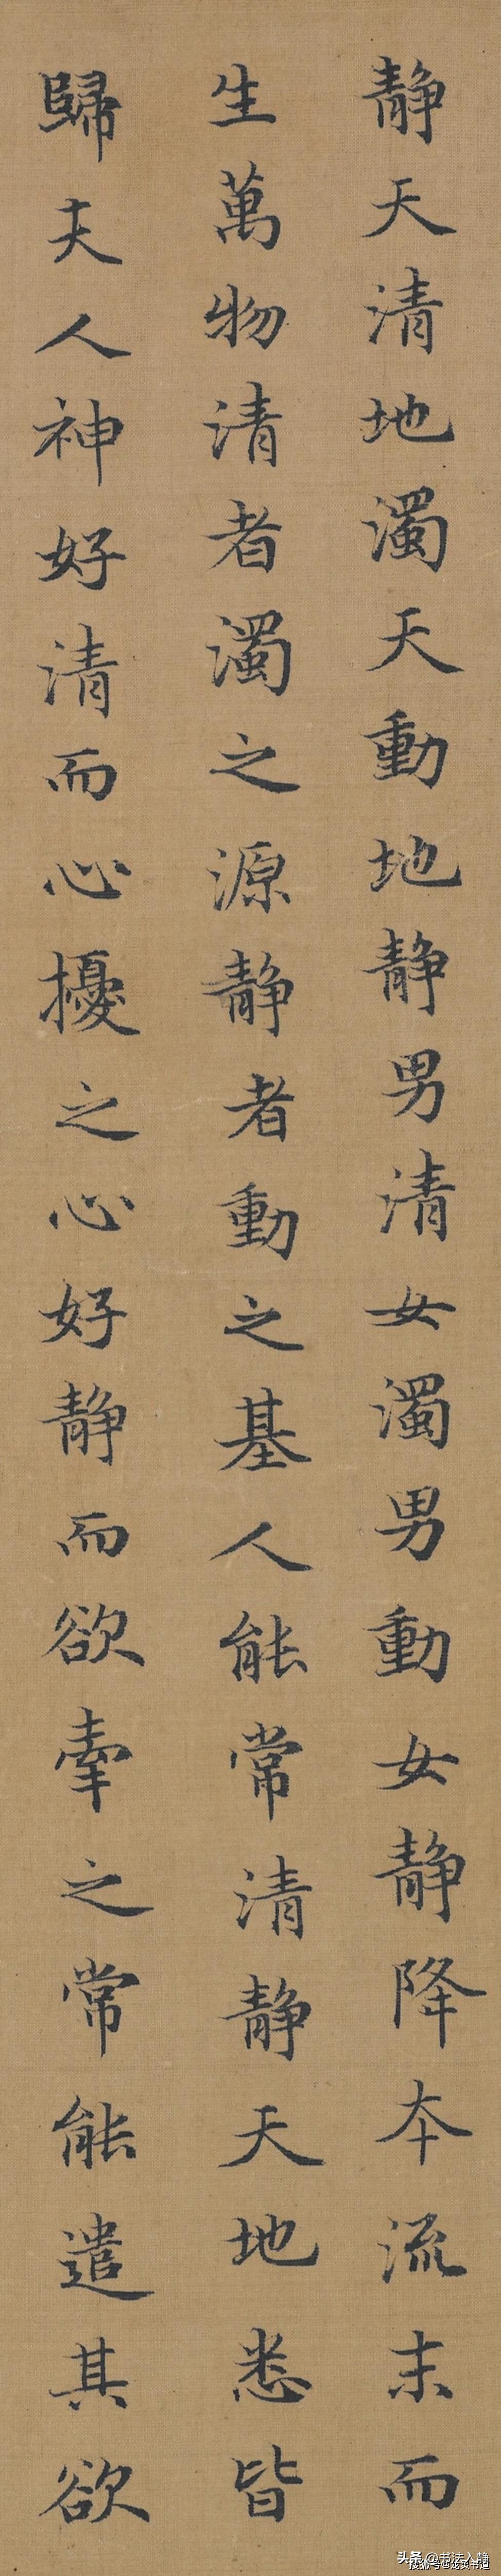 静天清地濁天動地静男清女濁男動女静降本流末而
生萬物清者濁之源静者動之基人能常清静天地悉皆
歸夫人神好清而心擾之心好静而欲牽之常能遣其欲
头条 @书法入静